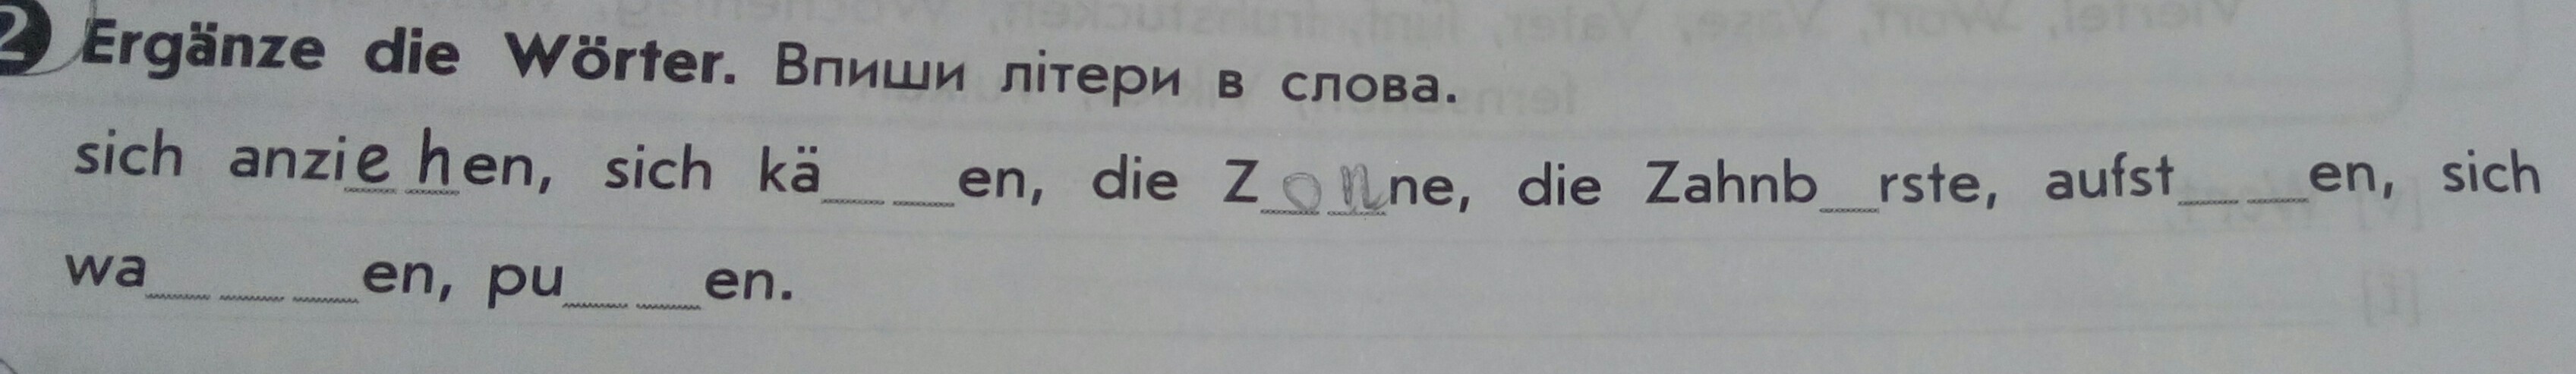 2 Ergänze die Wörter. Впиши літери в слова.
sich anziehen, sich kä__ __en, die Zonne, die Zahnb__rste, aufst__ __en, sich
wa__ __ __en, pu__ __en.